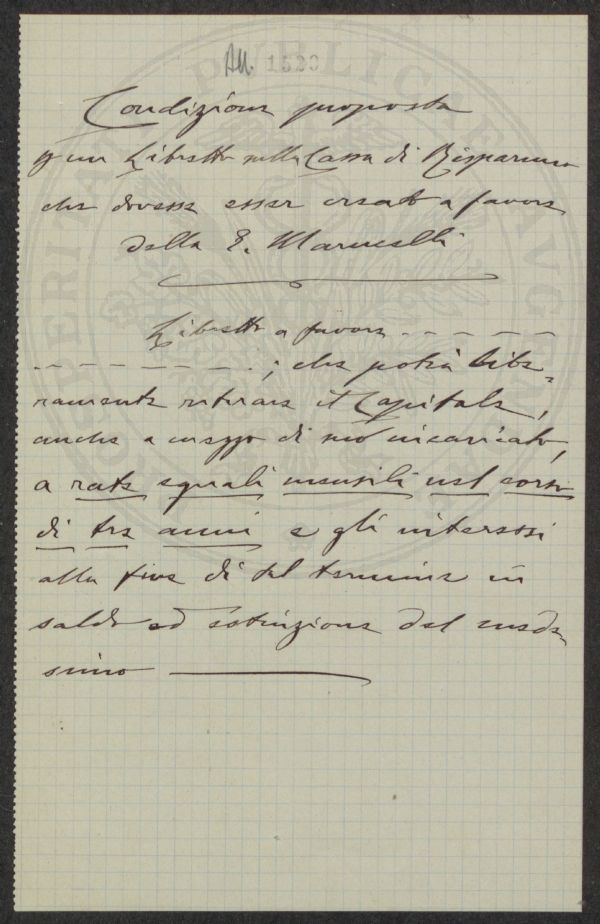 All. 1520
Condizione proposta
per un Libretto sulla Cassa di Risparmio
che dovesse esser creato a favore
della E. Marucelli
Libretto a favore - - - - - -
- - - - - - - - - ; che potrà libe=
ramente ritirare il Capitale,
anche a mezzo di suo incaricato,
a rate eguali mensili nel corso
di tre anni e gli interessi
alla fine di tal termine in
saldo ed estinzione del mede-
simo